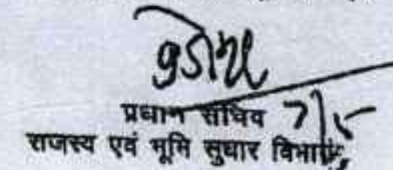 प्रधान सचिव 7/5
राजस्व एवं भूमि सुधार विभाग,